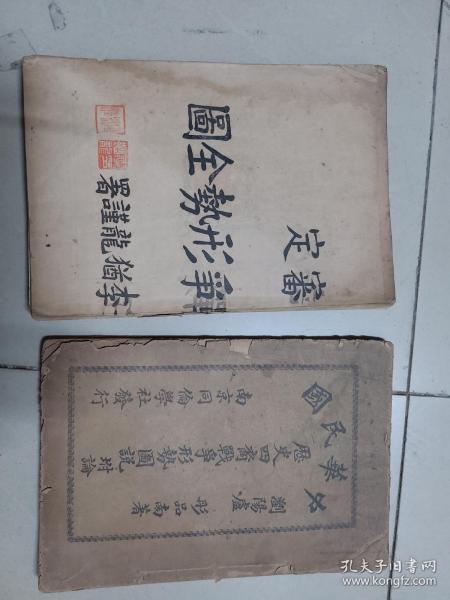 審定
爭形勢全圖
李猶龍謹署
國民
瀏陽盧彤品南著
歷史四裔戰爭形勢圖說附論
南京同倫學社發行
孔夫子旧书网
www.kongfz.com